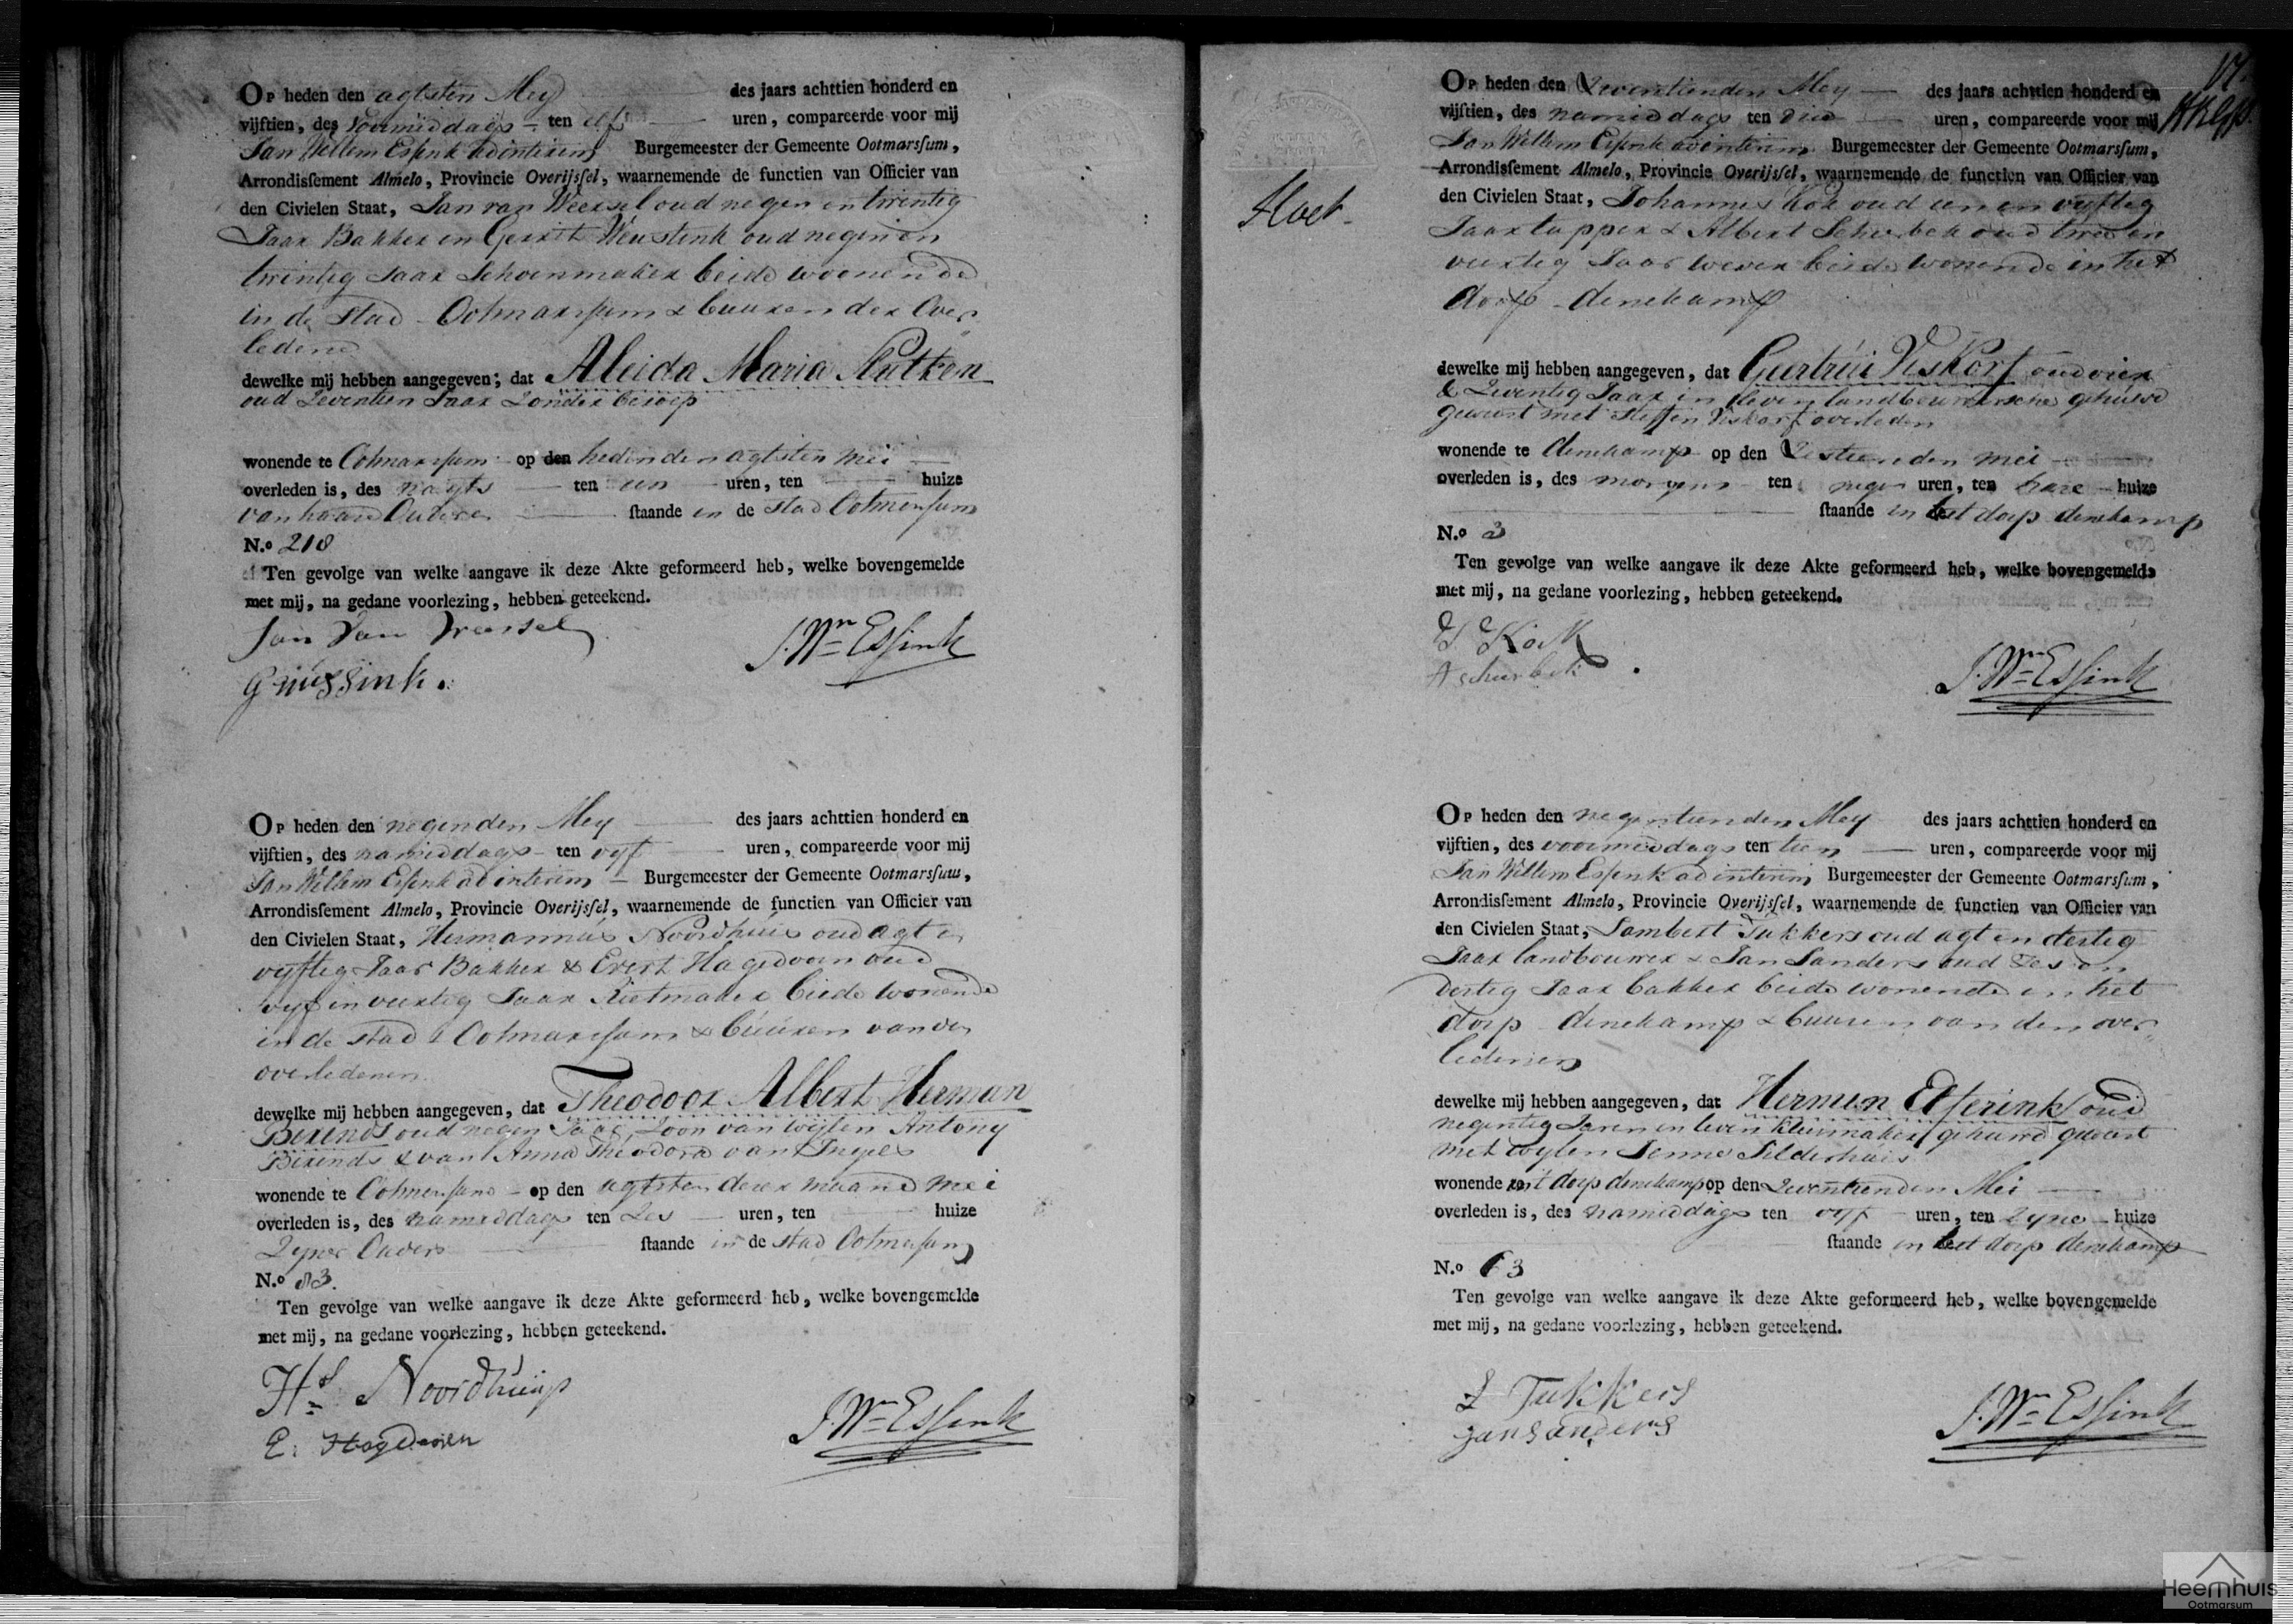 Op heden den agtsten Mey des jaars achttien honderd en
vijftien, des voormiddags ten elf uren, compareerde voor mij
Jan Willem Essink ad interim Burgemeester der Gemeente Ootmarssum,
Arrondissement Almelo, Provincie Overijssel, waarnemende de functien van Officier van
den Civielen Staat, Jan van Weexsel oud negen en twintig
Jaar Bakker en Gerrit oud negen en
twintig Jaar Schoenmaker beide woonende
in de stad Ootmarssum & buuren der Over
ledene
dewelke mij hebben aangegeven, dat Aleida Maria
oud zeventien Jaar zonder beroep
wonende te Ootmarssum op den heden den agtsten mei
overleden is, des nagts ten een uren, ten huize
van haare Ouders staande in de stad Ootmarssum
N.o 218
Ten gevolge van welke aangave ik deze Akte geformeerd heb, welke bovengemelde
met mij, na gedane voorlezing, hebben geteekend.
Jan Van Weessel
J. Wm Essink
Op heden den negenden Mey des jaars achttien honderd en
vijftien, des namiddags ten vyf uren, compareerde voor mij
Jan Willem Essink ad interim Burgemeester der Gemeente Ootmarssum,
Arrondissement Almelo, Provincie Overijssel, waarnemende de functien van Officier van
den Civielen Staat, Hermannus Noordhuis oud agt en
vyftig Jaar Bakker & Evert Hagedoorn oud
vyf en veertig Jaar Rietmaker beide wonende
in de stad Ootmarssum & buuren van den
overledenen
dewelke mij hebben aangegeven, dat Theodoor Albert Herman
Berends oud negen Jaar, zoon van wijlen Antony
Berends & van Anna Theodora van
wonende te Ootmarssum op den agtsten dezer maand mei
overleden is, des namiddags ten zes uren, ten huize
zyner Ouders staande in de stad Ootmarssum
N.o 83.
Ten gevolge van welke aangave ik deze Akte geformeerd heb, welke bovengemelde
met mij, na gedane voorlezing, hebben geteekend.
Hs Noordhuijs
E. Hagedoorn
J. Wm Essink
17.
Op heden den zeventienden Mey des jaars achttien honderd en
vijftien, des namiddags ten drie uren, compareerde voor mij
Jan Willem Essink ad interim Burgemeester der Gemeente Ootmarssum,
Arrondissement Almelo, Provincie Overijssel, waarnemende de functien van Officier van
den Civielen Staat, Johannes Kok oud een en vyftig
Jaar tapper & Albert Scheurbek oud twee en
veertig Jaar wever beide wonende in het
dorp denekamp
dewelke mij hebben aangegeven, dat Geertrui Viskorf oud vier
& zeventig Jaar in leven landbouwersche gehuwd
geweest met Steffen Viskorf overleden
wonende te denekamp op den zestienden mei
overleden is, des morgens ten negen uren, ten hare huize
staande in het dorp denekamp
N.o 3
Ten gevolge van welke aangave ik deze Akte geformeerd heb, welke bovengemelde
met mij, na gedane voorlezing, hebben geteekend.
J. Kok
A scheurbek
J. Wm Essink
Op heden den negentienden Mey des jaars achttien honderd en
vijftien, des voormiddags ten tien uren, compareerde voor mij
Jan Willem Essink ad interim Burgemeester der Gemeente Ootmarssum,
Arrondissement Almelo, Provincie Overijssel, waarnemende de functien van Officier van
den Civielen Staat, Lambert Tukkers oud agt en dertig
Jaar landbouwer & Jan Sanders oud zes en
dertig Jaar bakker beide wonende in het
dorp denekamp & buuren van den over
ledenen
dewelke mij hebben aangegeven, dat Hermen Elferink oud
negentig Jaren in leven kleermaker gehuwd geweest
met wylen Jenne Silderhuis
wonende in't dorp denekamp op den zeventienden Mei
overleden is, des namiddags ten vyf uren, ten zyne huize
staande in het dorp denekamp
N.o 63
Ten gevolge van welke aangave ik deze Akte geformeerd heb, welke bovengemelde
met mij, na gedane voorlezing, hebben geteekend.
L Tukkers
Jan Sanders
J. Wm Essink
Heemhuis
Ootmarsum